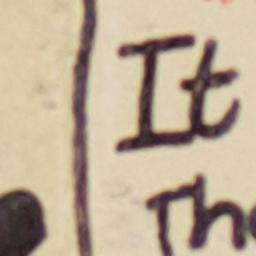 It
The